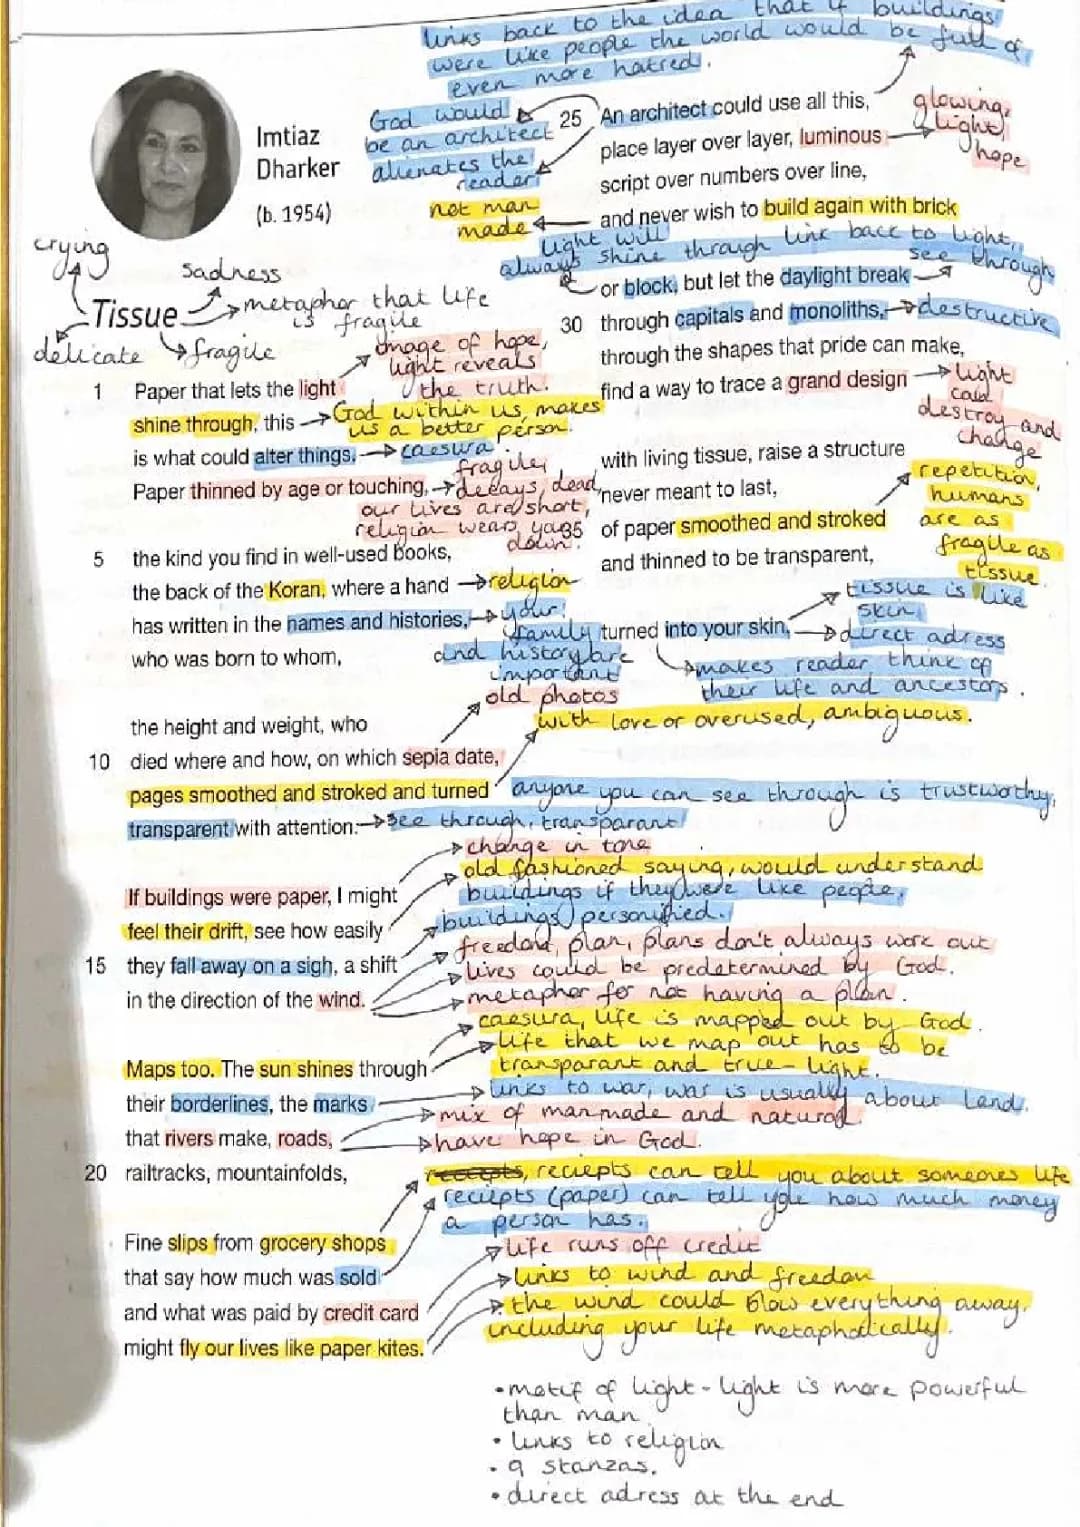 links back to the idea that if buildings
were like people the world would be full of
even more hatred.
Imtiaz
Dharker
(b. 1954)
God would
be an architect
alienates the
reader
not man
made
crying
sadness
metaphor that life
is fragile
Tissue
delicate
fragile
image of hope,
light reveals
the truth.
1 Paper that lets the light
shine through, this
God within us, makes
us a better person.
is what could alter things.
caesura
Paper thinned by age or touching,
fragile,
decays, dead,
our lives are short,
religion wears you
down.
5 the kind you find in well-used books,
the back of the Koran, where a hand
religion
has written in the names and histories,
your
family
and history are
important
who was born to whom,
old photos
the height and weight, who
with love or overused, ambiguous.
10 died where and how, on which sepia date,
pages smoothed and stroked and turned
anyone you can see through is trustworthy,
transparent with attention.
see through, transparant
change in tone
old fashioned saying, would understand
buildings if they were like people,
buildings personified.
If buildings were paper, I might
feel their drift, see how easily
15 they fall away on a sigh, a shift
in the direction of the wind.
freedom, plan, plans don't always work out
lives could be predetermined by God.
metaphor for not having a plan.
caesura, life is mapped out by God.
life that we map out has to be
transparent and true - light.
Maps too. The sun shines through
their borderlines, the marks
links to war, war is usually about land.
mix of manmade and natural
that rivers make, roads,
have hope in God.
20 railtracks, mountainfolds,
receipts, reciepts can tell you about someones life
reciepts (paper) can tell you how much money
a person has.
Fine slips from grocery shops
that say how much was sold
life runs off credit
and what was paid by credit card
links to wind and freedom
might fly our lives like paper kites.
the wind could blow everything away,
including your life metaphorically.
25 An architect could use all this,
place layer over layer, luminous
glowing,
light,
hope
script over numbers over line,
and never wish to build again with brick
light will
always shine through link back to light,
see through
or block, but let the daylight break
30 through capitals and monoliths,
destructive
through the shapes that pride can make,
find a way to trace a grand design
light
could
destroy and
change
with living tissue, raise a structure
never meant to last,
35 of paper smoothed and stroked
repetition,
humans
are as
fragile as
tissue
and thinned to be transparent,
tissue is like
skin,
turned into your skin.
direct adress
makes reader think of
their life and ancestors.
•motif of light - light is more powerful
than man
• links to religion
• 9 stanzas.
• direct adress at the end